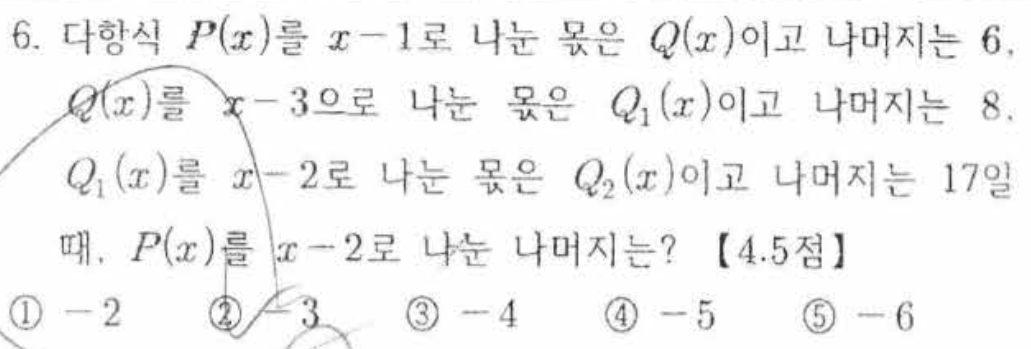 6. 다항식 P(x)를 x-1로 나눈 몫은 Q(x)이고 나머지는 6,
Q(x)를 x-3으로 나눈 몫은 Q₁(x)이고 나머지는 8,
Q₁(x)를 x-2로 나눈 몫은 Q₂(x)이고 나머지는 17일
때, P(x)를 x-2로 나눈 나머지는? 【4.5점】
① -2 ② -3 ③ -4 ④ -5 ⑤ -6